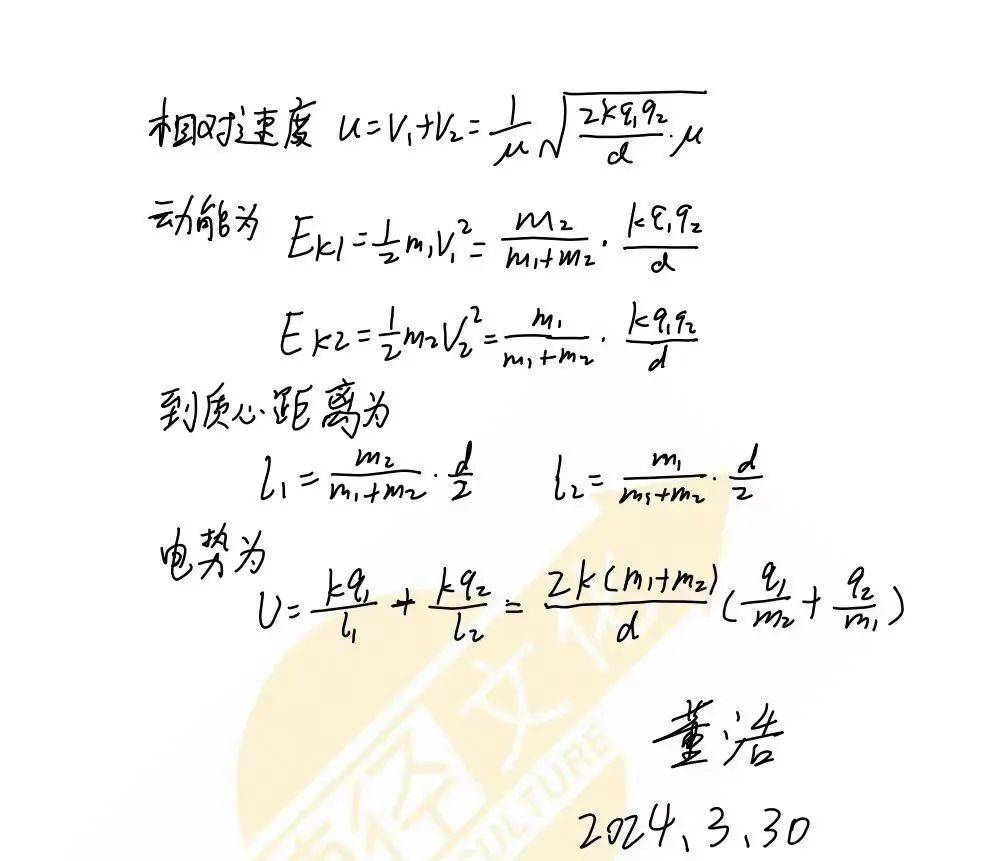 相对速度 u=V₁+V₂=\frac{1}{μ}\sqrt{\frac{2kq₁q₂}{d}·μ}
动能为 E_{K1}=\frac{1}{2}m₁V₁²=\frac{m₂}{m₁+m₂}·\frac{kq₁q₂}{d}
E_{K2}=\frac{1}{2}m₂V₂²=\frac{m₁}{m₁+m₂}·\frac{kq₁q₂}{d}
到质心距离为
l₁=\frac{m₂}{m₁+m₂}·\frac{d}{2} l₂=\frac{m₁}{m₁+m₂}·\frac{d}{2}
电势为
U=\frac{kq₁}{l₁}+\frac{kq₂}{l₂}=\frac{2k(m₁+m₂)}{d}(\frac{q₁}{m₂}+\frac{q₂}{m₁})
董浩
2024.3.30